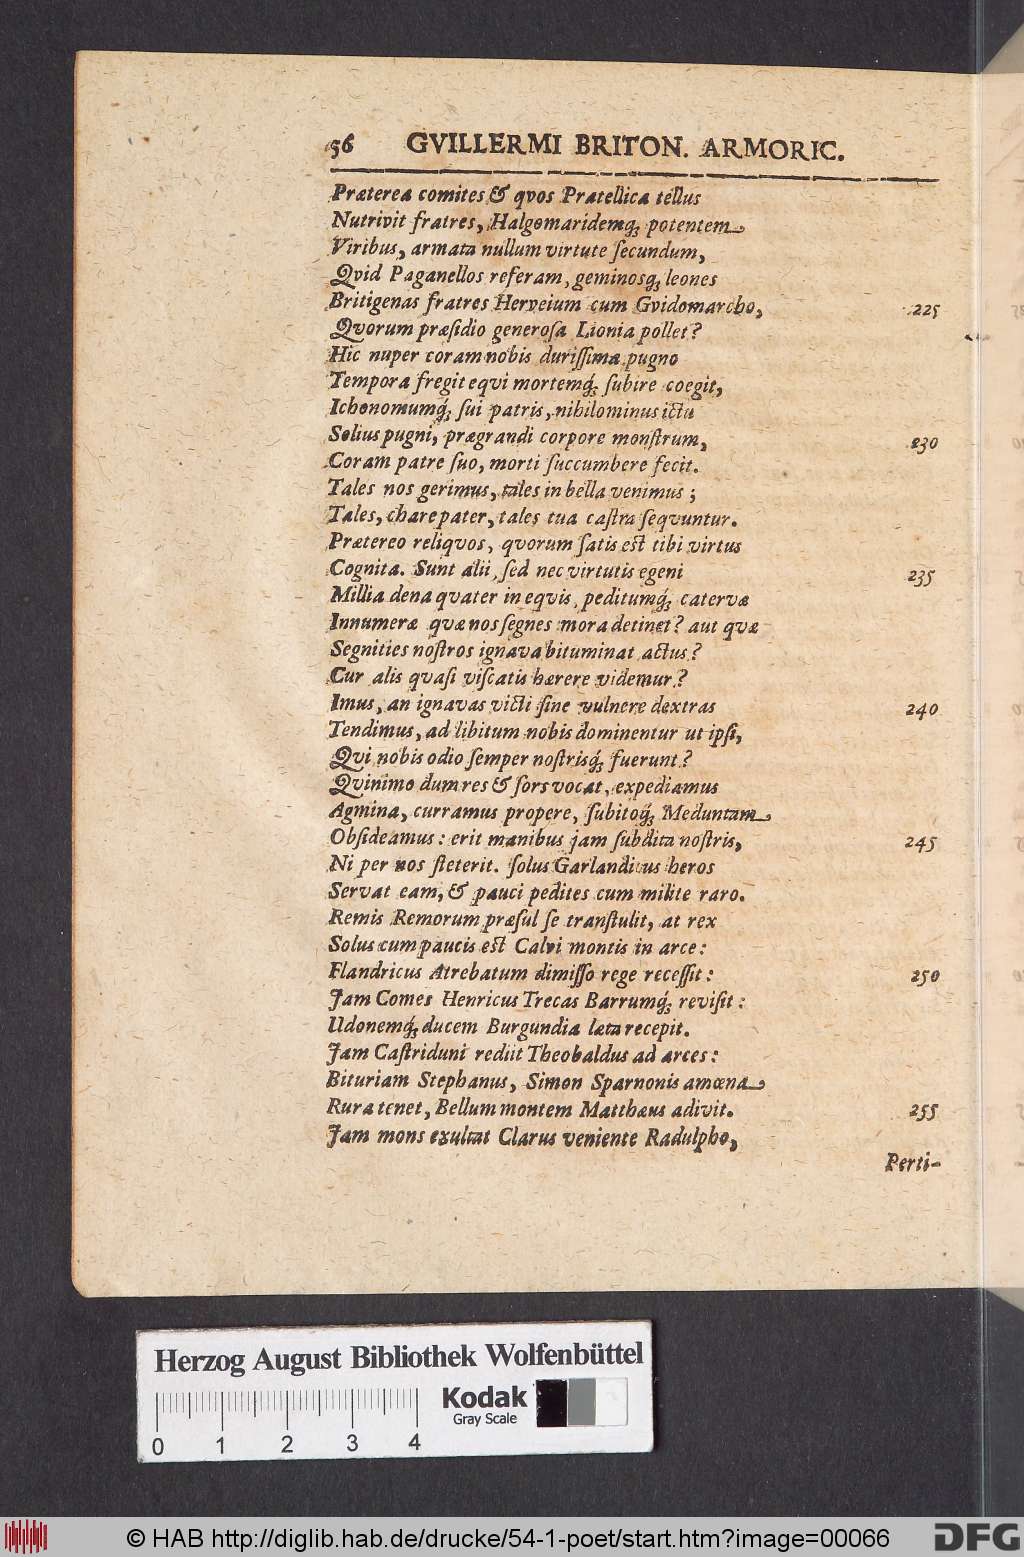 56 GVILLERMI BRITON. ARMORIC.
Præterea comites & qvos Pratellica tellus
Nutrivit fratres, Halgomaridemq́; potentem
Viribus, armata nullum virtute ſecundum,
Qvid Paganellos referam, geminosq́; leones
Britigenas fratres Herveium cum Gvidomarcho, 225
Qvorum præſidio generoſa Lionia pollet?
Hic nuper coram nobis duriſſima pugno
Tempora fregit eqvi mortemq́; ſubire coegit,
Ichonomumq́; ſui patris, nihilominus ictu
Solius pugni, prægrandi corpore monſtrum, 230
Coram patre ſuo, morti ſuccumbere fecit.
Tales nos gerimus, tales in bella venimus;
Tales, chare pater, tales tua caſtra ſeqvuntur.
Prætereo reliqvos, qvorum ſatis est tibi virtus
Cognita. Sunt alii, ſed nec virtutis egeni 235
Millia dena qvater in eqvis, peditumq́; catervæ
Innumeræ qvæ nos ſegnes mora detinet? aut qvæ
Segnities noſtros ignava bituminat actus?
Cur alis qvaſi viſcatis hærere videmur?
Imus, an ignavas victi ſine vulnere dextras 240
Tendimus, ad libitum nobis dominentur ut ipſi,
Qvi nobis odio ſemper noſtrisq́; fuerunt?
Qvinimo dum res & ſors vocat, expediamus
Agmina, curramus propere, ſubitoq́; Meduntam
Obſideamus: erit manibus jam ſubdita noſtris, 245
Ni per nos ſteterit. ſolus Garlandicus heros
Servat eam, & pauci pedites cum milite raro.
Remis Remorum præſul ſe tranſtulit, at rex
Solus cum paucis est Calvi montis in arce:
Flandricus Atrebatum dimiſſo rege receſſit: 250
Jam Comes Henricus Trecas Barrumq́; reviſit:
Udonemq́; ducem Burgundia læta recepit.
Jam Caſtriduni rediit Theobaldus ad arces:
Bituriam Stephanus, Simon Sparnonis amœna
Rura tenet, Bellum montem Matthæus adivit. 255
Jam mons exultat Clarus veniente Radulpho,
Perti-
Herzog August Bibliothek Wolfenbüttel
0 1 2 3 4
Kodak
Gray Scale
© HAB http://diglib.hab.de/drucke/54-1-poet/start.htm?image=00066
DFG